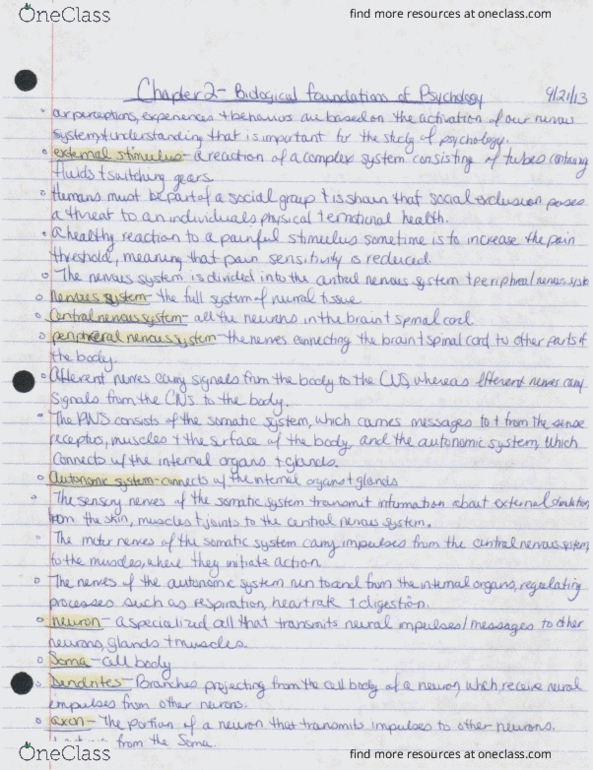 OneClass
find more resources at oneclass.com
Chapter 2 - Biological foundations of Psychology 9/21/13
• our perceptions, experiences + behaviors are based on the activation of our nervous
system + understanding that is important for the study of psychology.
• external stimulus - a reaction of a complex system consisting of tubes containing
fluids + switching gears.
• Humans must be part of a social group + is shown that social exclusion poses
a threat to an individuals physical + emotional health.
• a healthy reaction to a painful stimulus sometime is to increase the pain
threshold, meaning that pain sensitivity is reduced.
• The nervous system is divided into the central nervous system + peripheral nervous syste
• Nervous system - the full system of neural tissue
• Central nervous system - all the neurons in the brain + spinal cord.
• peripheral nervous system - the nerves connecting the brain + spinal cord to other parts of
the body.
• Afferent nerves carry signals from the body to the CNS, whereas Efferent nerves carry
signals from the CNS to the body.
• The PNS consists of the somatic system, which carries messages to + from the sense
receptors, muscles + the surface of the body, and the autonomic system, which
connects w/ the internal organs + glands.
• Autonomic system - connects w/ the internal organs + glands
• The sensory nerves of the somatic system transmit information about external stimulation,
from the skin, muscles + joints to the central nervous system.
• The motor nerves of the somatic system carry impulses from the central nervous system,
to the muscles, where they initiate action.
• The nerves of the autonomic system run to and from the internal organs, regulating
processes such as respiration, heart rate + digestion.
• neuron - a specialized cell that transmits neural impulses/messages to other
neurons, glands + muscles.
• Soma - cell body
• Dendrites - Branches projecting from the cell body of a neuron, which receive neural
impulses from other neurons.
• axon - The portion of a neuron that transmits impulses to other neurons.
from the Soma.
OneClass
find more resources at oneclass.com